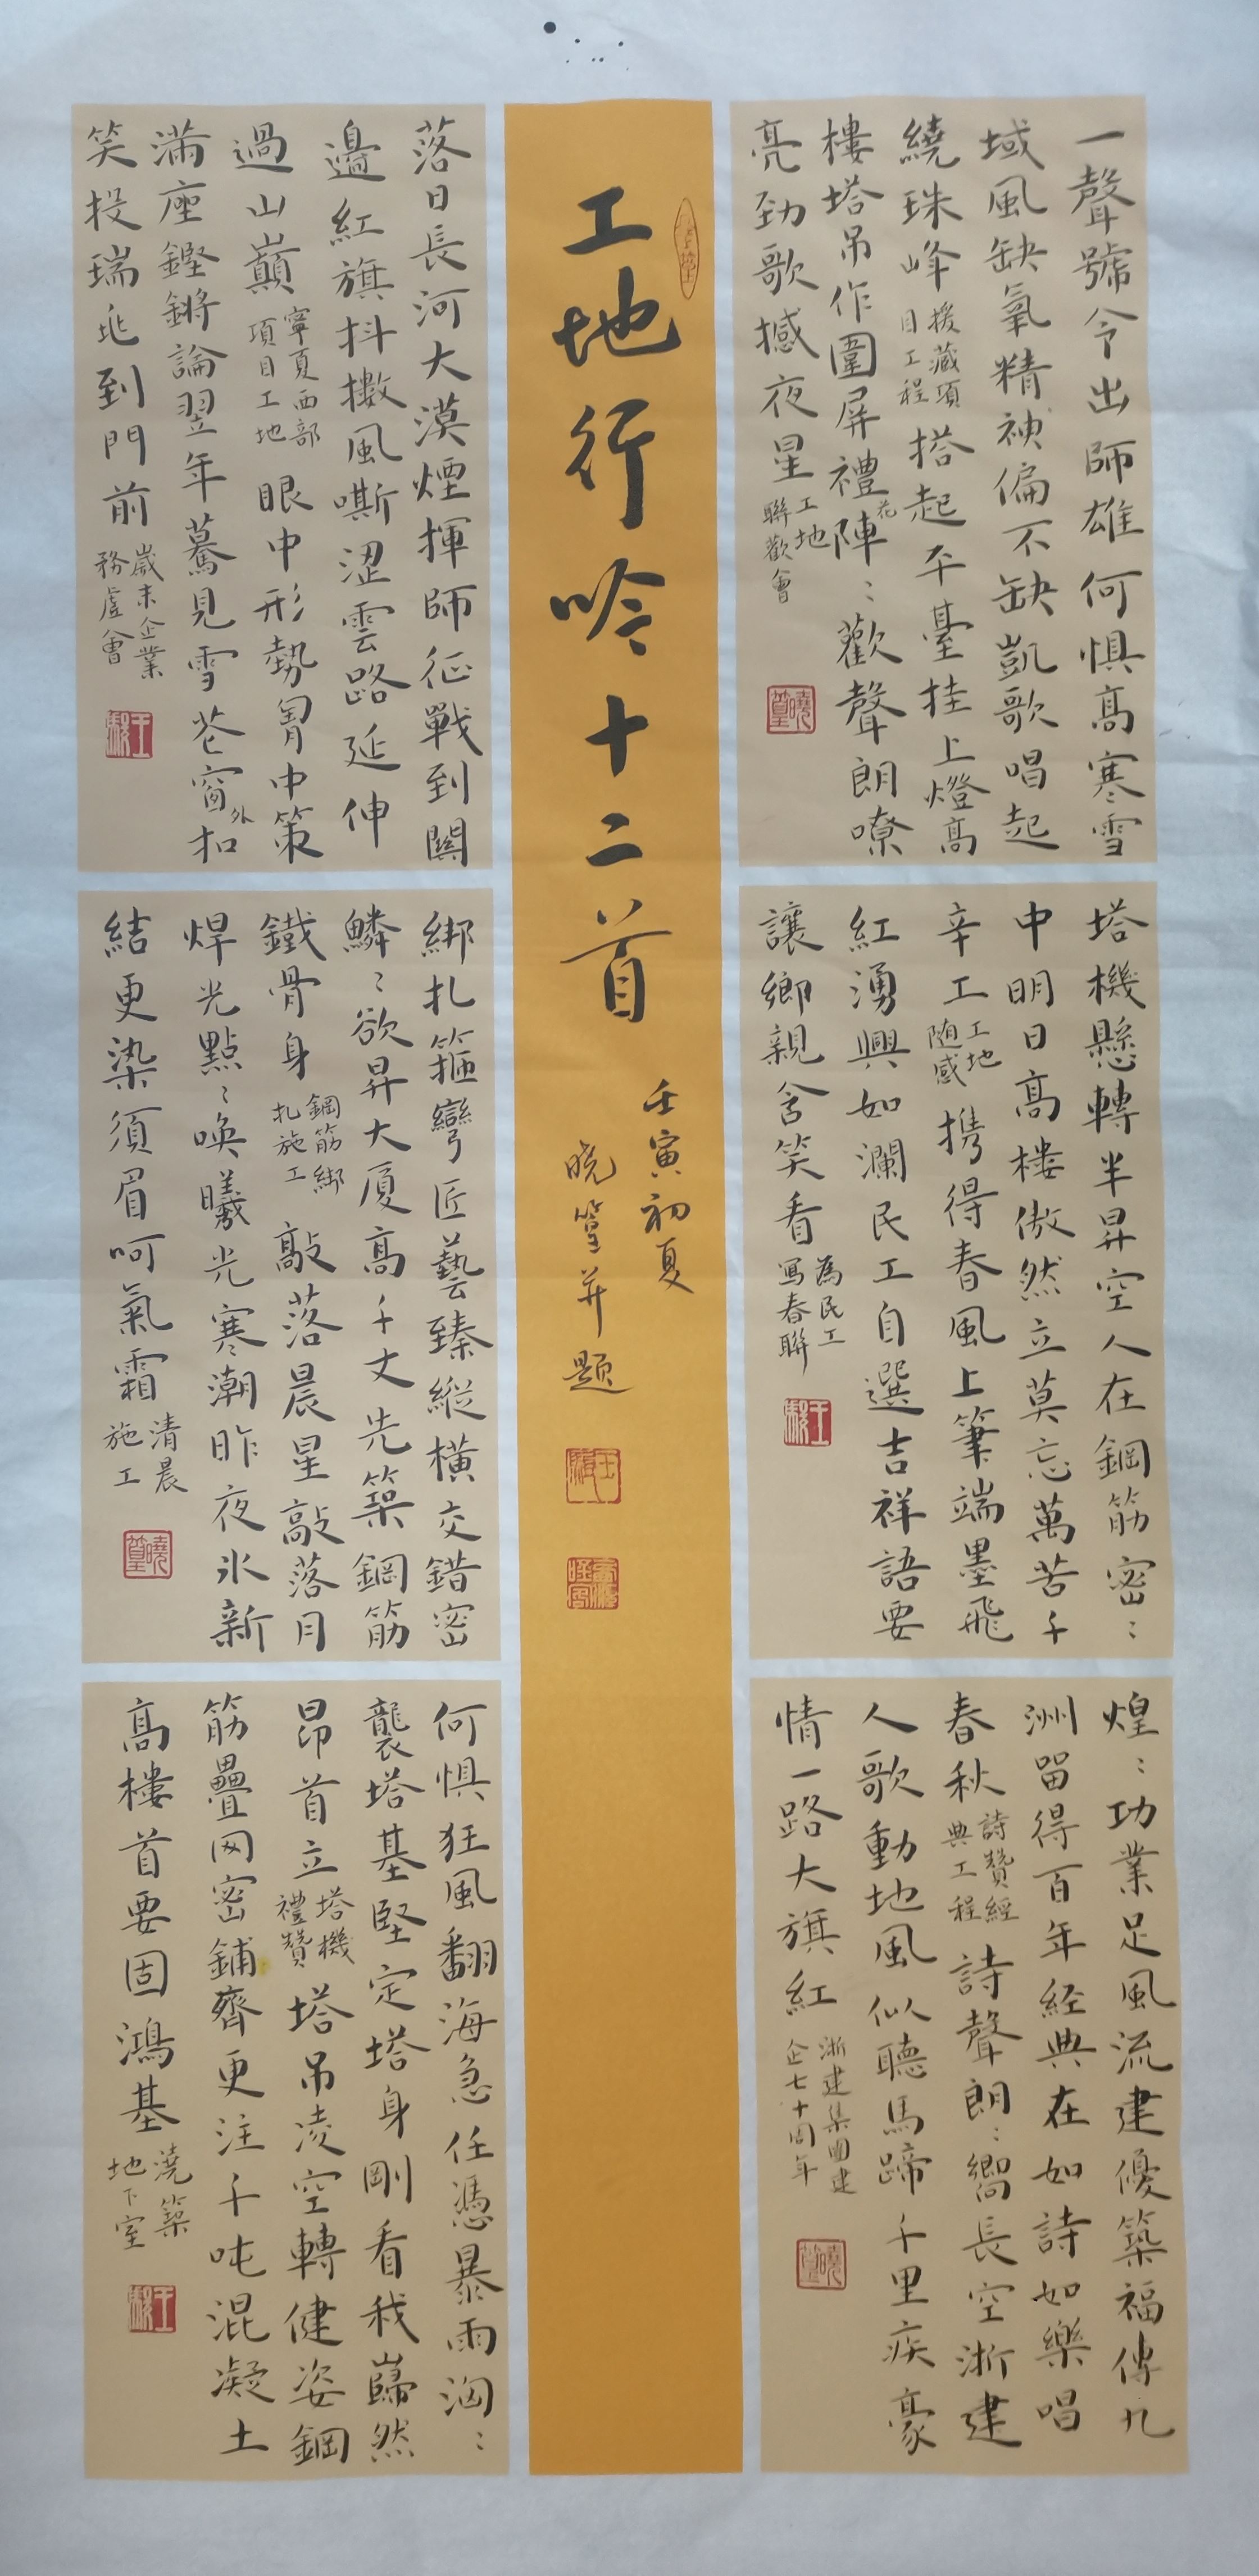 一聲號令出師雄何惧高寒雪
域風缺氧精神偏不缺凱歌唱起
繞珠峰
援藏項
目工程
搭起平臺挂上燈高
樓塔吊作圍屏禮花陣〻歡聲朗嘹
亮勁歌撼夜星
工地
聯歡會
曉篁
塔機懸轉半昇空人在鋼筋密〻
中明日高樓傲然立莫忘萬苦千
辛工
工地
随感
携得春風上筆端墨飛
紅湧興如瀾民工自選吉祥語要
讓鄉親含笑看
為民工
寫春聯
煌〻功業足風流建優築福傳九
洲留得百年經典在如詩如樂唱
春秋
詩贊經
典工程
詩聲朗〻嚮長空浙建
人歌動地風似聽馬蹄千里疾豪
情一路大旗紅
浙建集團建
企七十周年
曉篁
工地行吟十二首
壬寅初夏
曉篁并題
落日長河大漠煙揮師征戰到關
邊紅旗抖擻風嘶澀雲路延伸
過山巔
寧夏西部
項目工地
眼中形勢胃中策
滿座鏗鏘論翌年驀見雪花窗外扣
笑投瑞兆到門前
歲末企業
務虛會
綁扎箍彎匠藝臻縱橫交錯密
鱗〻欲昇大厦高千丈先築鋼筋
鐵骨身
鋼筋綁
扎施工
敲落晨星敲落月
焊光點〻喚曦光寒潮昨夜冰新
結更染須眉呵氣霜
清晨
施工
曉篁
何惧狂風翻海急任憑暴雨洶〻
襲塔基堅定塔身剛看我巋然
昂首立
塔機
禮贊
塔吊凌空轉健姿鋼
筋疊网密鋪齊更注千吨混凝土
高樓首要固鴻基
澆築
地下室